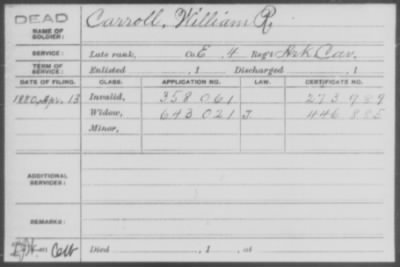 DEAD
NAME OF SOLDIER: Carroll, William R.
SERVICE: Late rank, Co. E 4 Reg't Ark Cav.
TERM OF SERVICE: Enlisted , 1 Discharged , 1
DATE OF FILING. CLASS. APPLICATION NO. LAW. CERTIFICATE NO.
1880, Apr. 13 Invalid, 358 061 273 989
Widow, 643 021 J 446 885
Minor,
ADDITIONAL SERVICES:
REMARKS:
Died , 1 , at